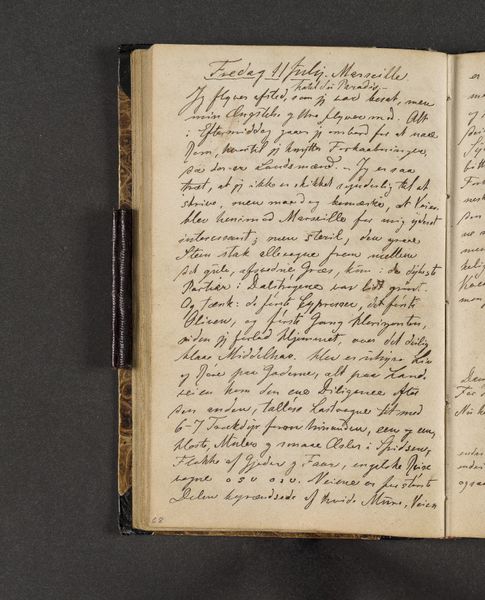 Fredag 11 July. Marseille
Hotel du Paradis.
Jeg flyver afsted, som jeg var besat, men
min Ængstelse og Uro flyver med. Alt
i Eftermiddag gaaer jeg ombord for at naae
Rom, hvortil jeg knytter Forhaabninger
paa danske Landsmænd. – Jeg er saa
træt, at jeg ikke er skikket synderlig til at
skrive, men maa dog bemærke, at Veien
blev henimod Marseille for mig yderst
interessant; men steril, den graae
Steen stak allevegne frem mellem
det gule, afsvedne Græs, kun i de dybeste
Partier i Dalstrøgene var lidt grønt.
Og tænk: de første Cypresser, det første
Oliven, og første Gang Horizonten,
siden jeg forlod Hjemmet, over det deilig
blaae Middelhav. Her er uhyre Liv
og Røre paa Gaderne, alt paa Land-
veien kom den ene Diligence efter
den anden, talløse Lastvogne tit med
6-7 Trækdyr foran hinanden, een og een,
Heste, Muler og smaae Æsler i Spidsen,
Flokke af Geder og Faar, engelske Reise
vogne osv osv. Veiene er for største
Delen byrændsede af hvide Mure, Veien
68